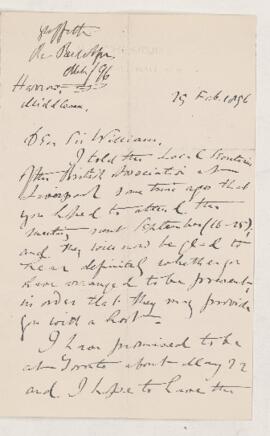 Griffith
Harrow
Middlesex
29 Feb. 1896
Dear Sir William,
I told the Local Secretaries
of the British Association at
Liverpool some time ago that
you hoped to attend the
meeting next September (16-23),
and they would now be glad to
hear definitely whether you
have arranged to be present
in order that they may provide
you with a host.
I have promised to be
at about May 22
and I hope to have the